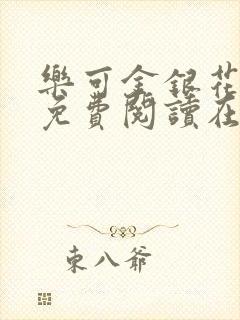 樂可金銀花
免費閱讀在
東八爺